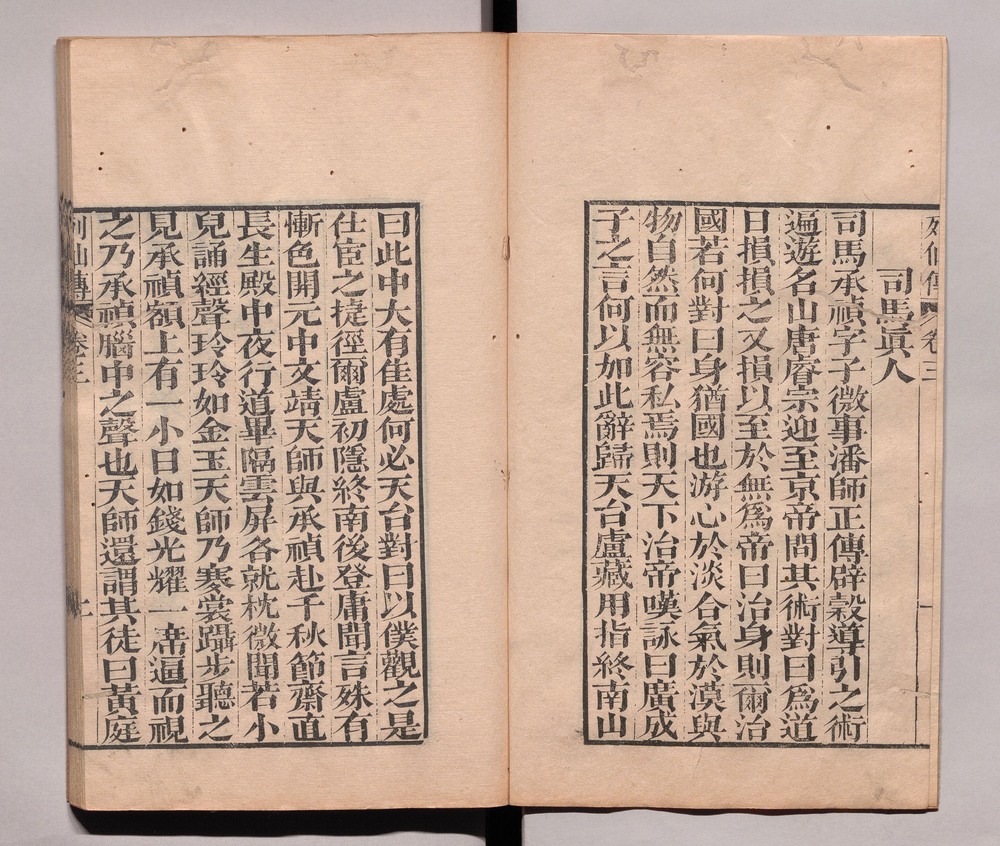 列仙傳 卷三 一
司馬眞人
司馬承禎字子微事潘師正傳辟穀導引之術
遍遊名山唐睿宗迎至京帝問其術對曰爲道
日損損之又損以至於無爲帝曰治身則爾治
國若何對曰身猶國也游心於淡合氣於漠與
物自然而無容私焉則天下治帝嘆詠曰廣成
子之言何以加此辭歸天台盧藏用指終南山
曰此中大有佳處何必天台對曰以僕觀之是
仕宦之捷徑爾盧初隱終南後登庸聞言殊有
慚色開元中文靖天師與承禎赴千秋節齋直
長生殿中夜行道畢隔雲屏各就枕微聞若小
兒誦經聲玲玲如金玉天師乃褰裳躡步聽之
見承禎額上有一小日如錢光耀一席逼而視
之乃承禎腦中之聲也天師還謂其徒曰黃庭
列仙傳 卷三